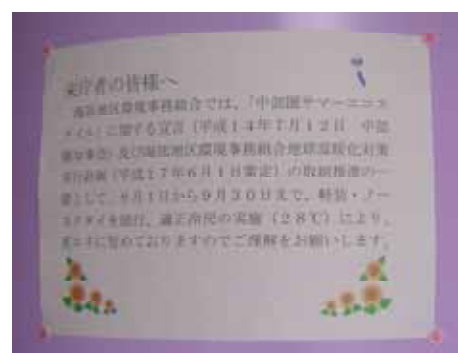 来庁者の皆様へ
地区環境事務組合では、「中部圏サマーエコス
タイル」に関する宣言(平成14年7月12日 中部
知事会)及び地区環境事務組合地球温暖化対策
実行計画(平成17年6月1日策定)の取組推進の一
環として、6月1日から9月30日まで、軽装・ノー
ネクタイを励行、適正冷房の実施(28℃)により、
省エネに努めておりますのでご理解をお願いします。